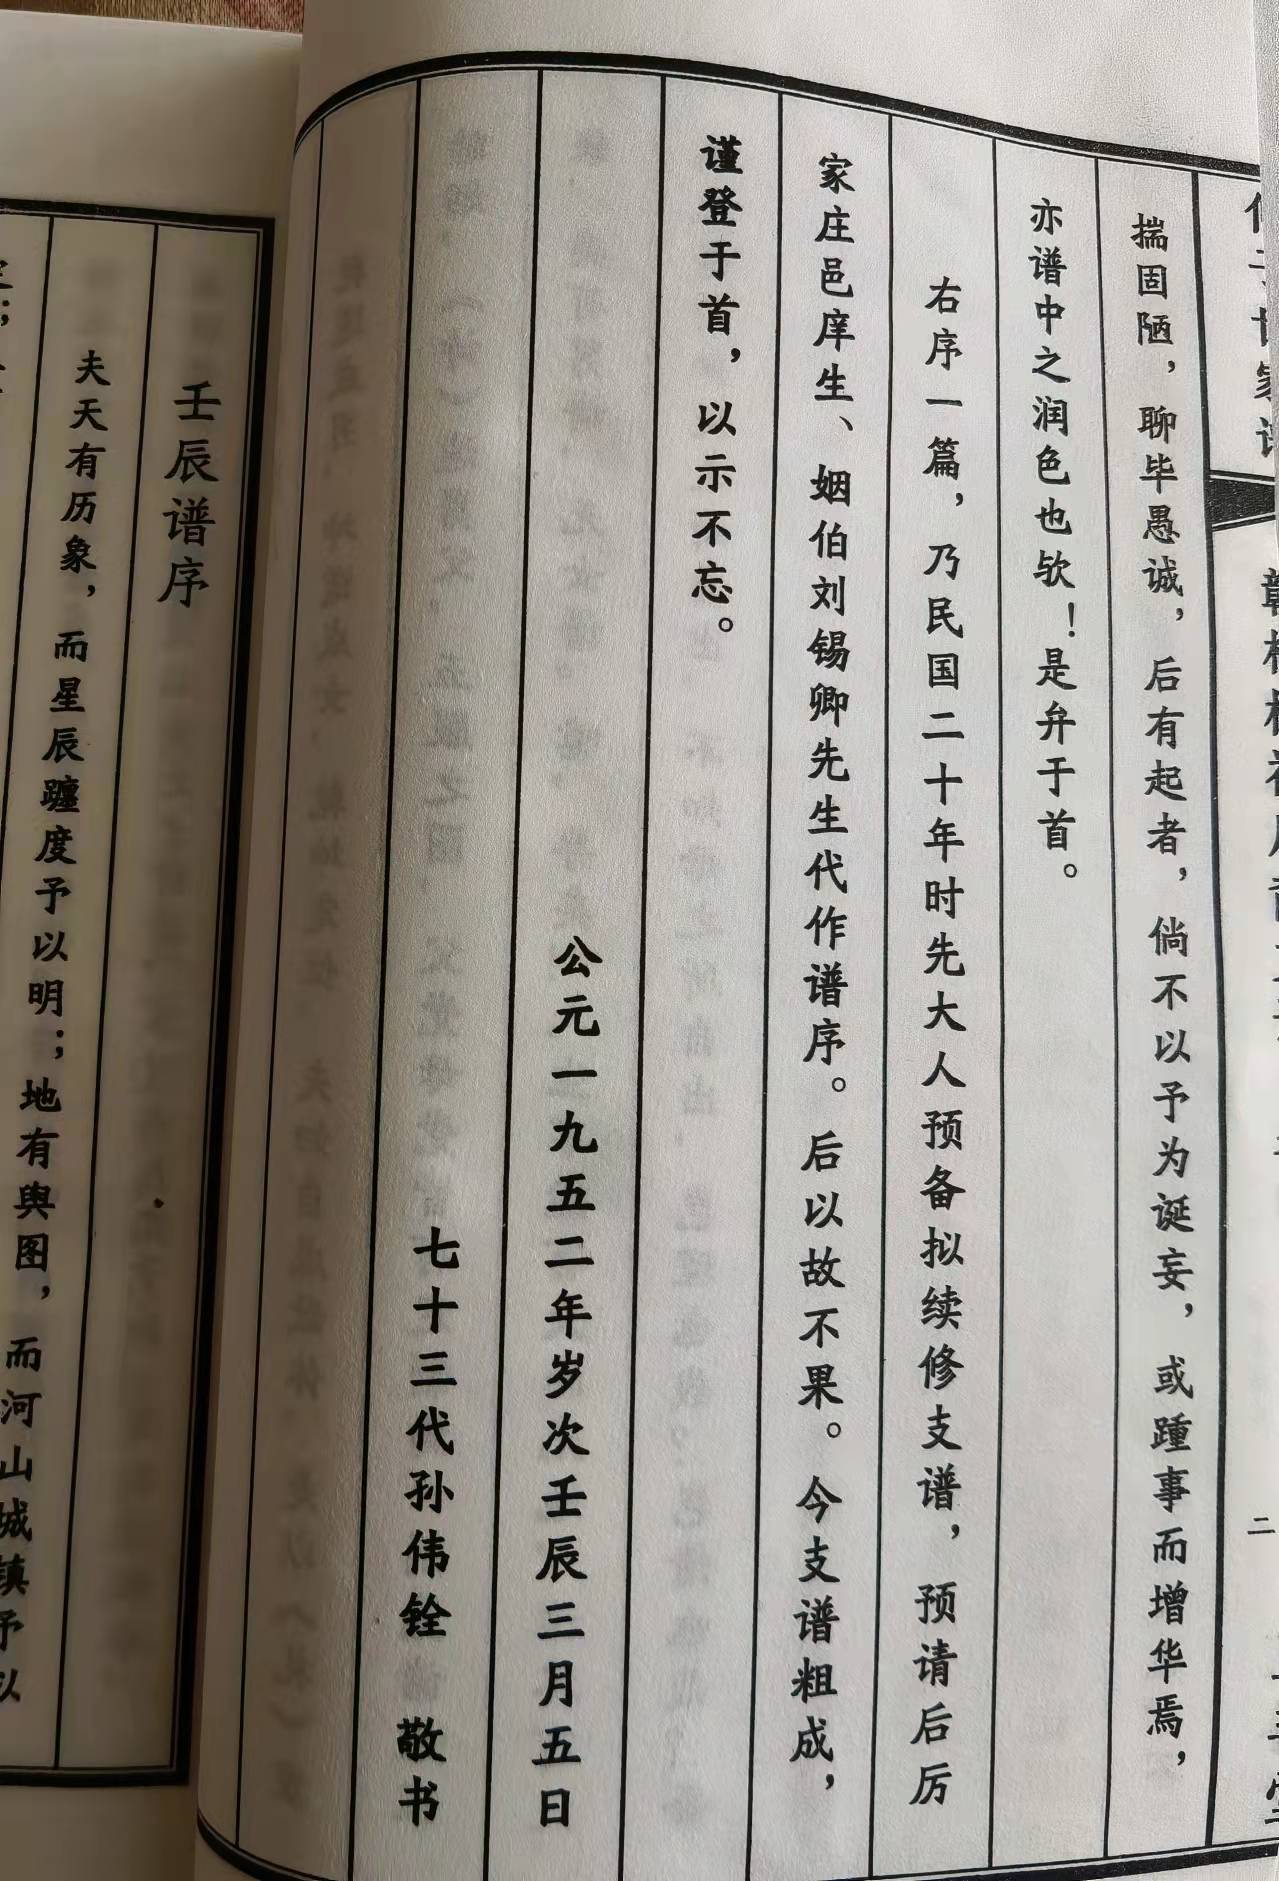 揣固陋，聊毕愚诚，后有起者，倘不以予为诞妄，或踵事而增华焉，
亦谱中之润色也欤！是弁于首。
右序一篇，乃民国二十年时先大人预备拟续修支谱，预请后厉
家庄邑庠生、姻伯刘锡卿先生代作谱序。后以故不果。今支谱粗成，
谨登于首，以示不忘。
公元一九五二年岁次壬辰三月五日
七十三代孙伟铨 敬书
壬辰谱序
夫天有历象，而星辰躔度予以明；地有舆图，而河山城镇予以